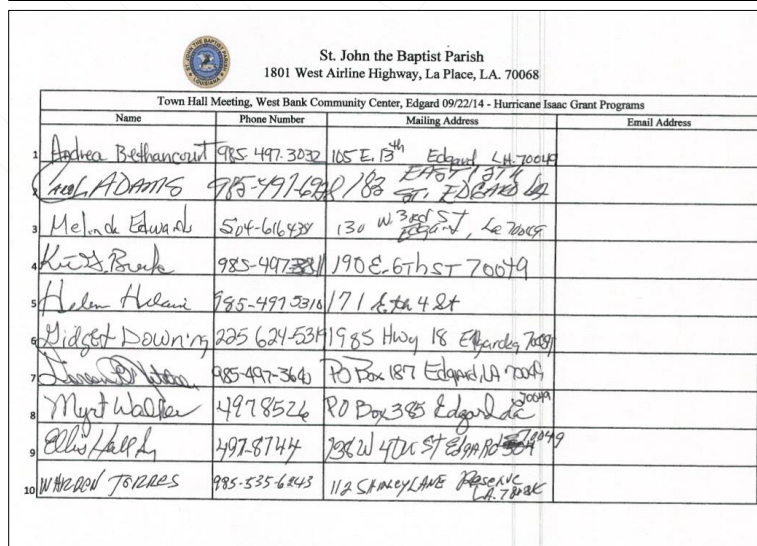 St. John the Baptist Parish
1801 West Airline Highway, La Place, LA. 70068
Town Hall Meeting, West Bank Community Center, Edgard 09/22/14 - Hurricane Isaac Grant Programs
Name Phone Number Mailing Address Email Address
1 Andrea Bethancourt 985-497-3032 105 E. 13th Edgard LA. 70049
2 ADAMS 183 EAST 12TH ST. EDGARD
3 Melinda Edwards 504- 130 W. 3rd ST Edgard, La 70049
4 985-497 190 E. 6Th ST 70049
5 Helen 985-497 5310 171 4 St
6 Gidget Downing 225 624-5319 1985 Hwy 18 70049
7 985-497-3640 PO Box 187 Edgard, LA 70049
8 Myrt Walker 497 8526 PO Box 385 Edgard La 70049
9 Ellis Hall 497-8744 238 W 4TH ST EdgARd 70049
10 WARDEN TORRES 985-535-6243 112 LANE Reserve LA.